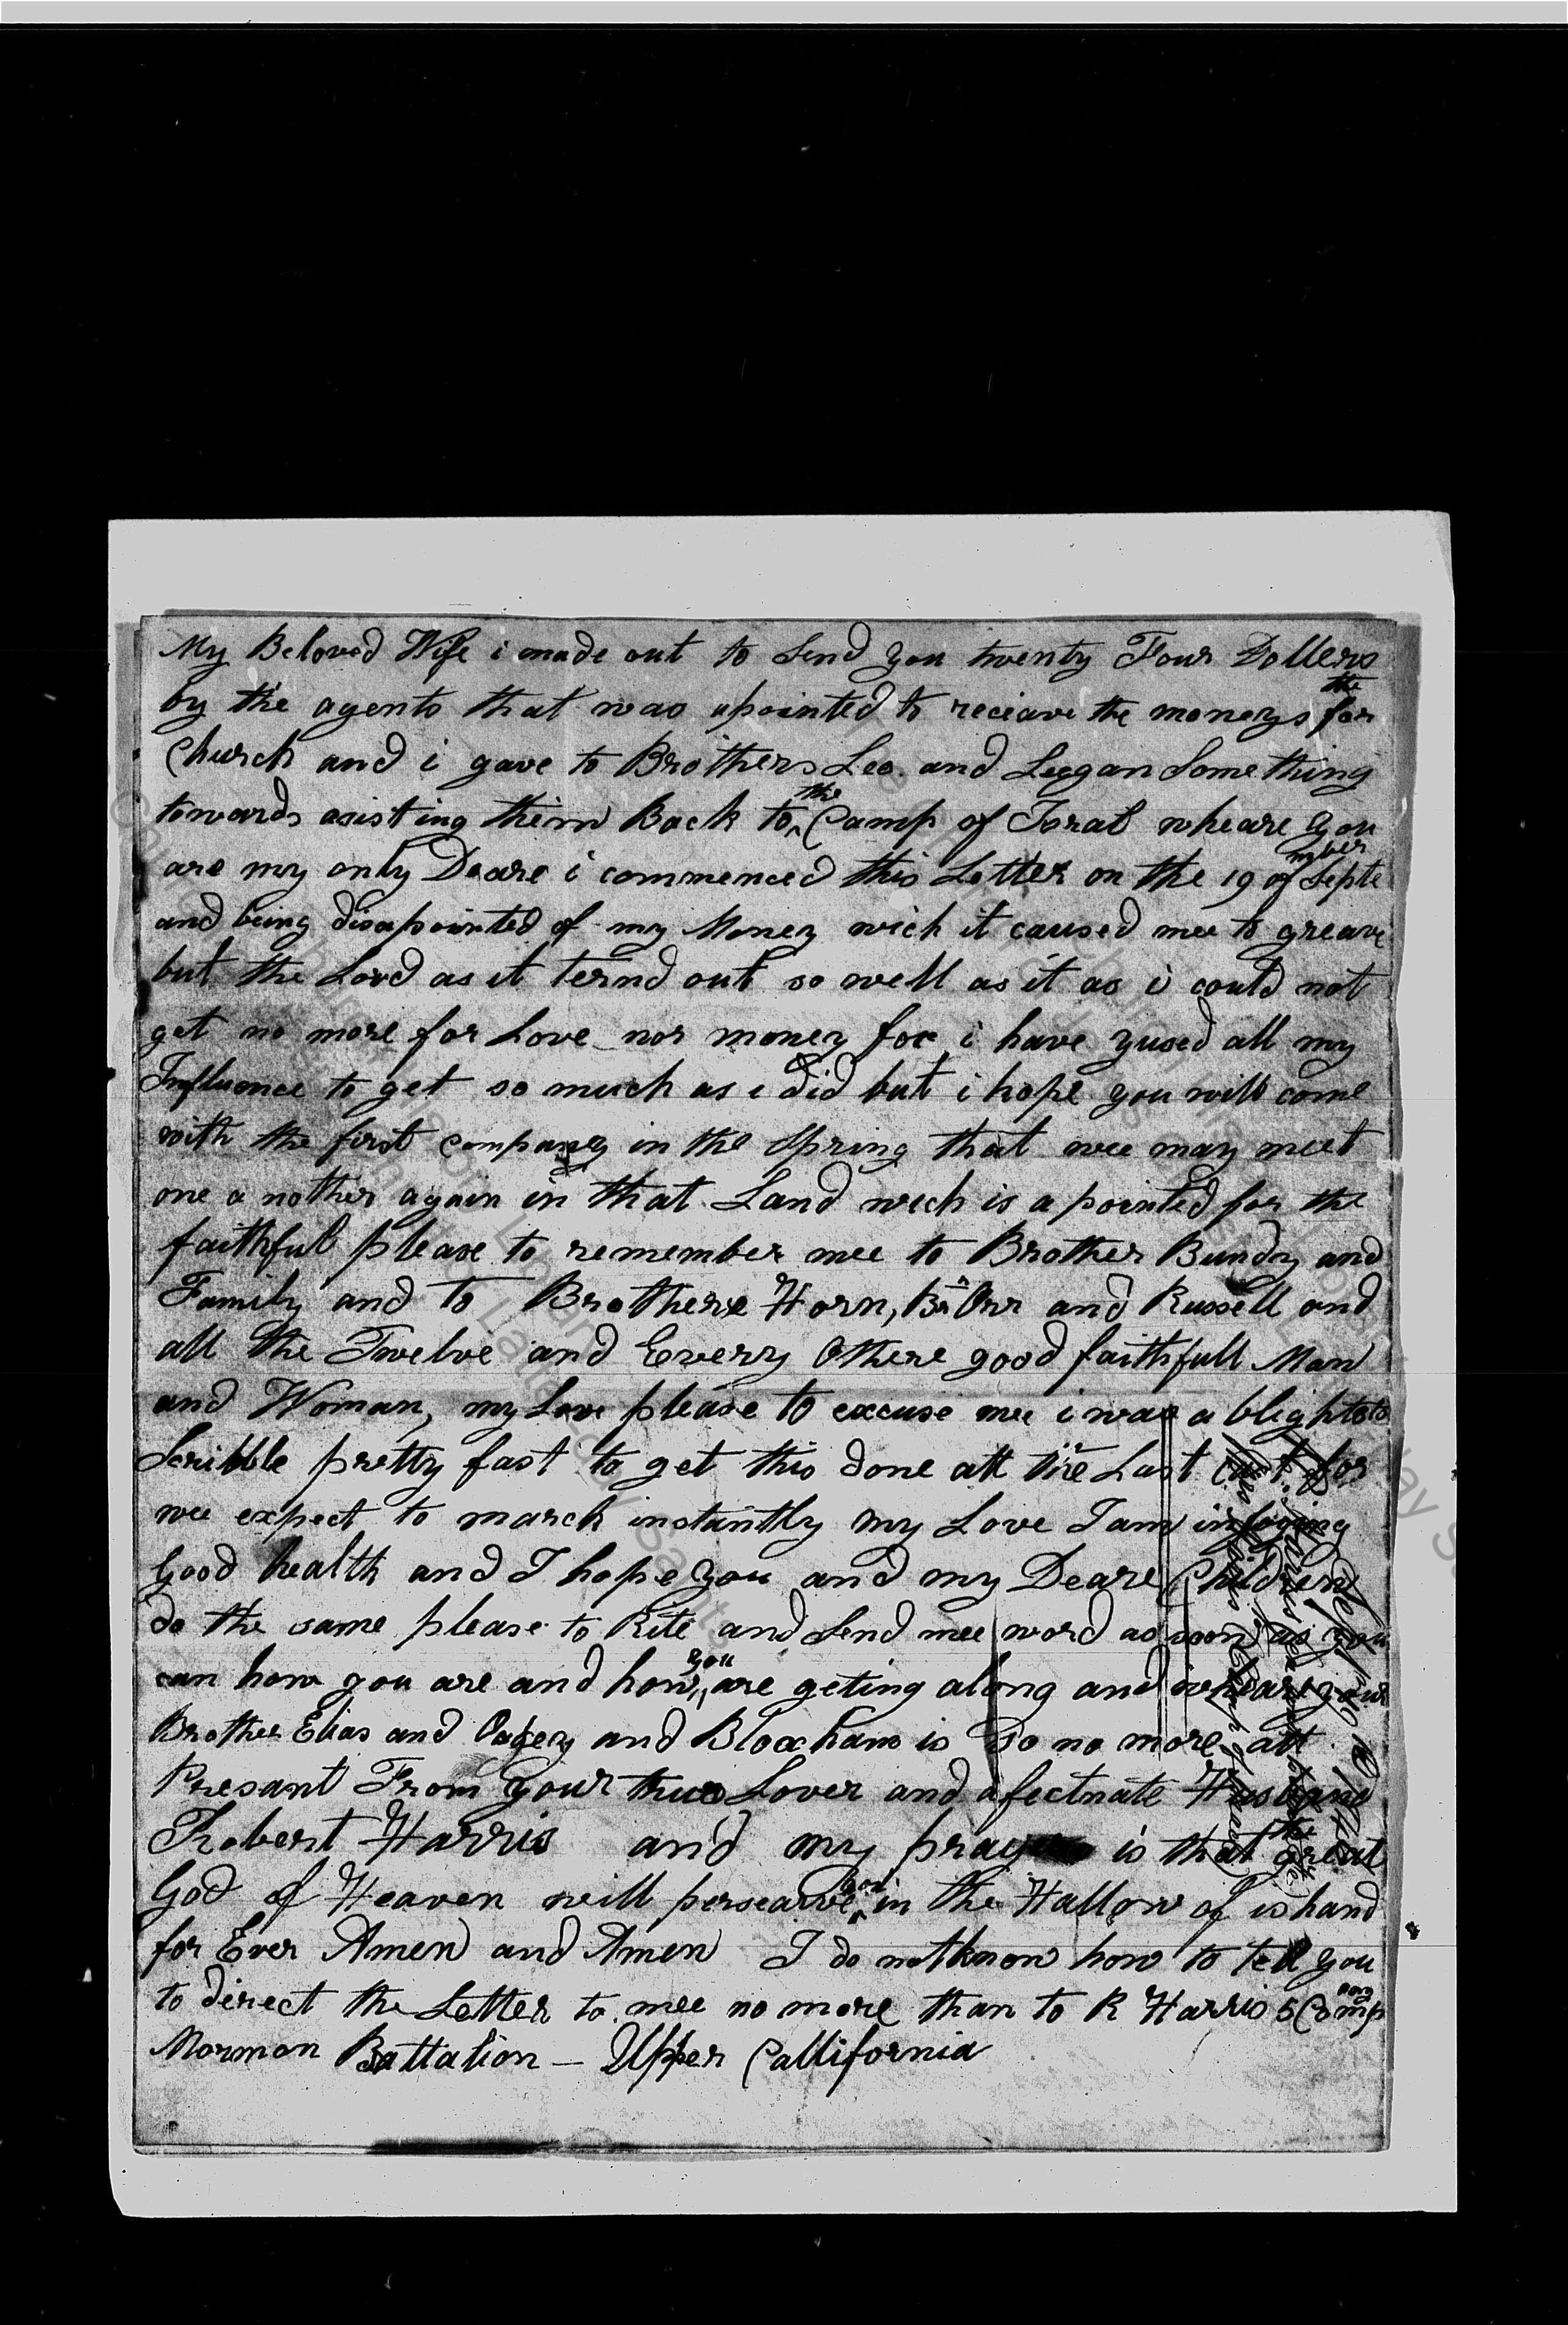 My Beloved Wife i made out to Send you twenty Four Dollers
by the agents that was apointed to reciave the moneys for the
Church and i gave to Brothers Lee and Leegan Some thing
towards asisting them Back to the Camp of Isral wheare you
are my only Deare i commenced this Letter on the 19 of September
and being disapointed of my Money wich it caused mee to greave
but the Lord as it ternd out so well as it as i could not
get no more for Love nor money for i have yused all my
Influence to get so much as i did but i hope you will come
with the first company in the Spring that wee may meet
one a nother again in that Land wich is a pointed for the
faithful please to remember mee to Brother Bundy and
Family and to Brothere Horn, Br Orr and Russell and
all the Twelve and Everry Othere good faithfull Man
and Woman, my Love please to excuse mee i was a blight to
Scribble pretty fast to get this done att the Last for
wee expect to march instantly my Love I am injoying
Good health and I hope you and my Deare Children
do the same please to Rite and Send mee word as soon as you
can how you are and how you are geting along and wheare your
Brother Elias and Oakey and Bloxham is So no more att
Presant From your true Lover and afectnate Husband
Robert Harris and my prayer is that the great
God of Heaven will persearve you in the Hallow of is hand
for Ever Amen and Amen I do not know how to tell you
to direct the Letter to mee no more than to R Harris 5 Company
Mormon Battation — Upper Callifornia